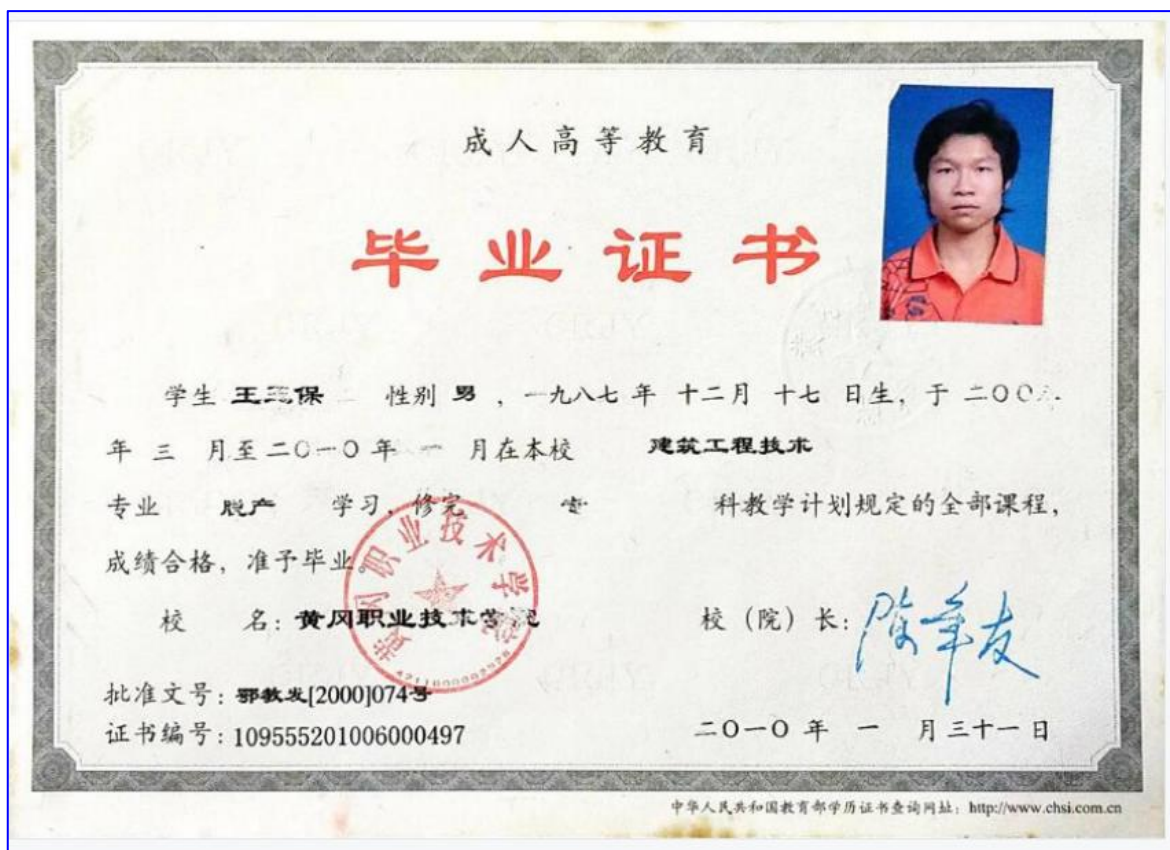 成人高等教育
毕业证书
学生 王三保 性别 男 ，一九八七 年 十二月 十七 日生，于 二00
年 三 月至二0一0 年 一 月在本校 建筑工程技术
专业 脱产 学习，修完 专 科教学计划规定的全部课程，
成绩合格，准予毕业。
校 名：黄冈职业技术学院
校（院）长：陈年友
批准文号：鄂教发[2000]074号
证书编号：109555201006000497
二0一0 年 一 月三十一日
黄冈职业技术学院
中华人民共和国教育部学历证书查询网址：http://www.chsi.com.cn